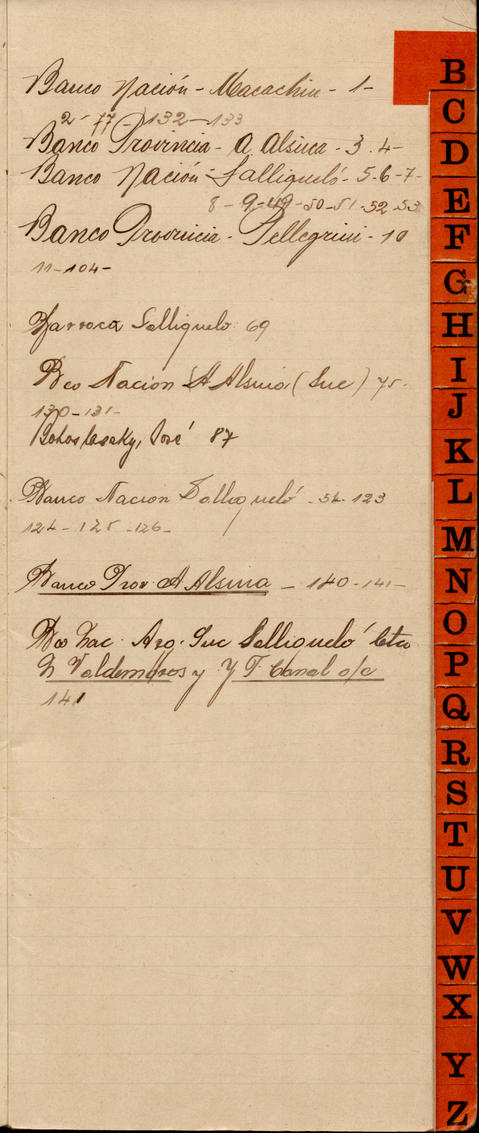 Banco Nación - Macachin - 1 -
2 - 77 - 132 - 133
Banco Provincia - A. Alsina - 3 - 4 -
Banco Nación - Salliqueló - 5 - 6 - 7 -
8 - 9 - 49 - 50 - 51 - 52 - 53
Banco Provincia - Pellegrini - 10
11 - 104 -
Salliquelo 69
Bco Nacion A Alsina (Suc) 75 -
130 - 131 -
José 87
Banco Nacion Salliqueló - 54 - 123
124 - 125 - 126 -
Banco Prov A Alsina - 140 - 141 -
Bco Nac. Arg. Suc Salliqueló Cta
y Y F Canal o/c
141
B
C
D
E
F
G
H
I
J
K
L
M
N
O
P
Q
R
S
T
U
V
W
X
Y
Z